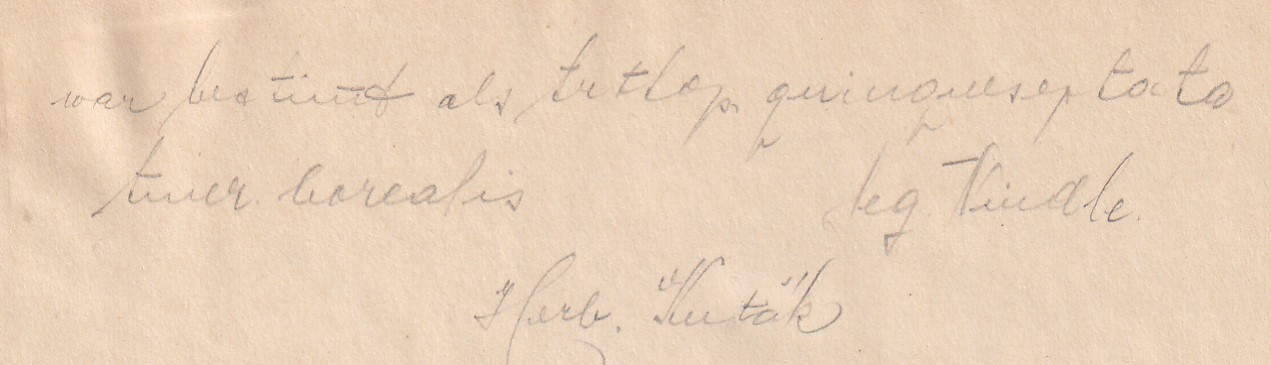 war bestimt als Arthop. quinqueseptata
Amer. borealis leg. Kindle.
Herb. Kuták